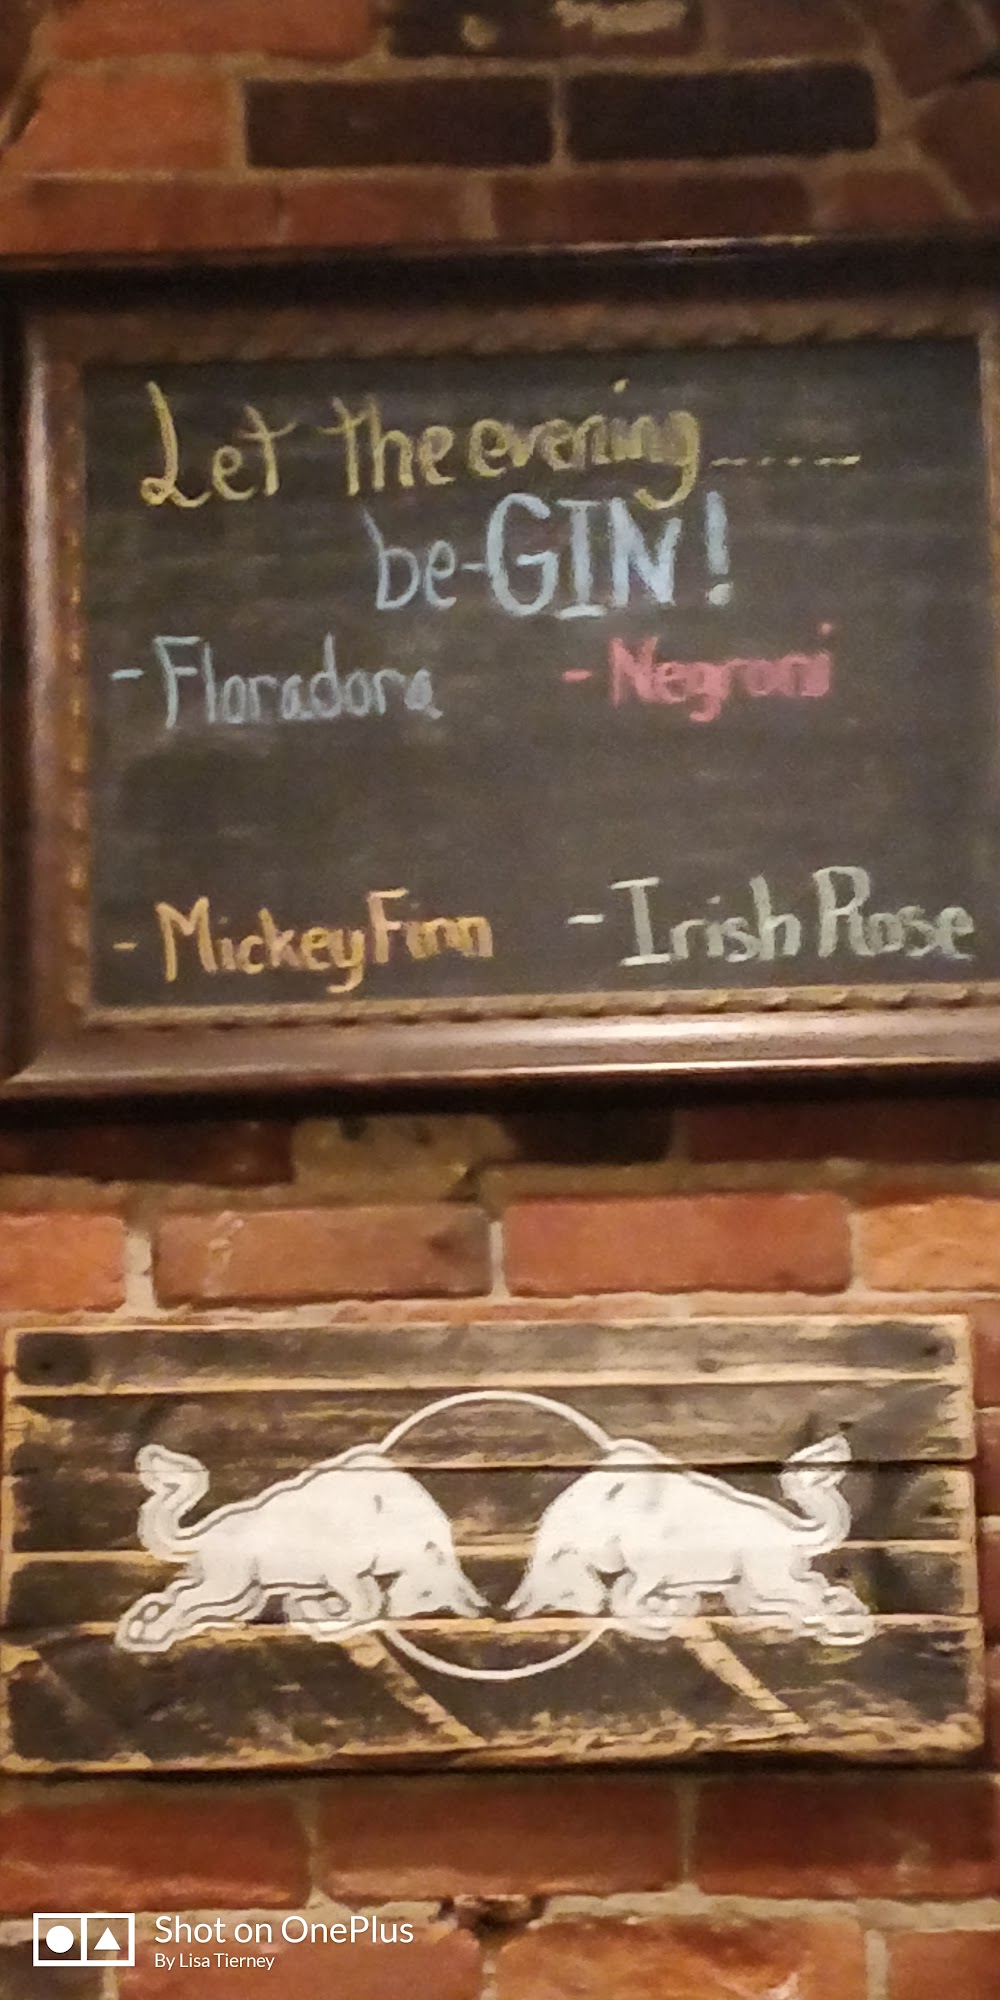 Let the evening......
be-GIN!
- Floradora - Negroni
- Mickey Finn - Irish Rose
Shot on OnePlus
By Lisa Tierney